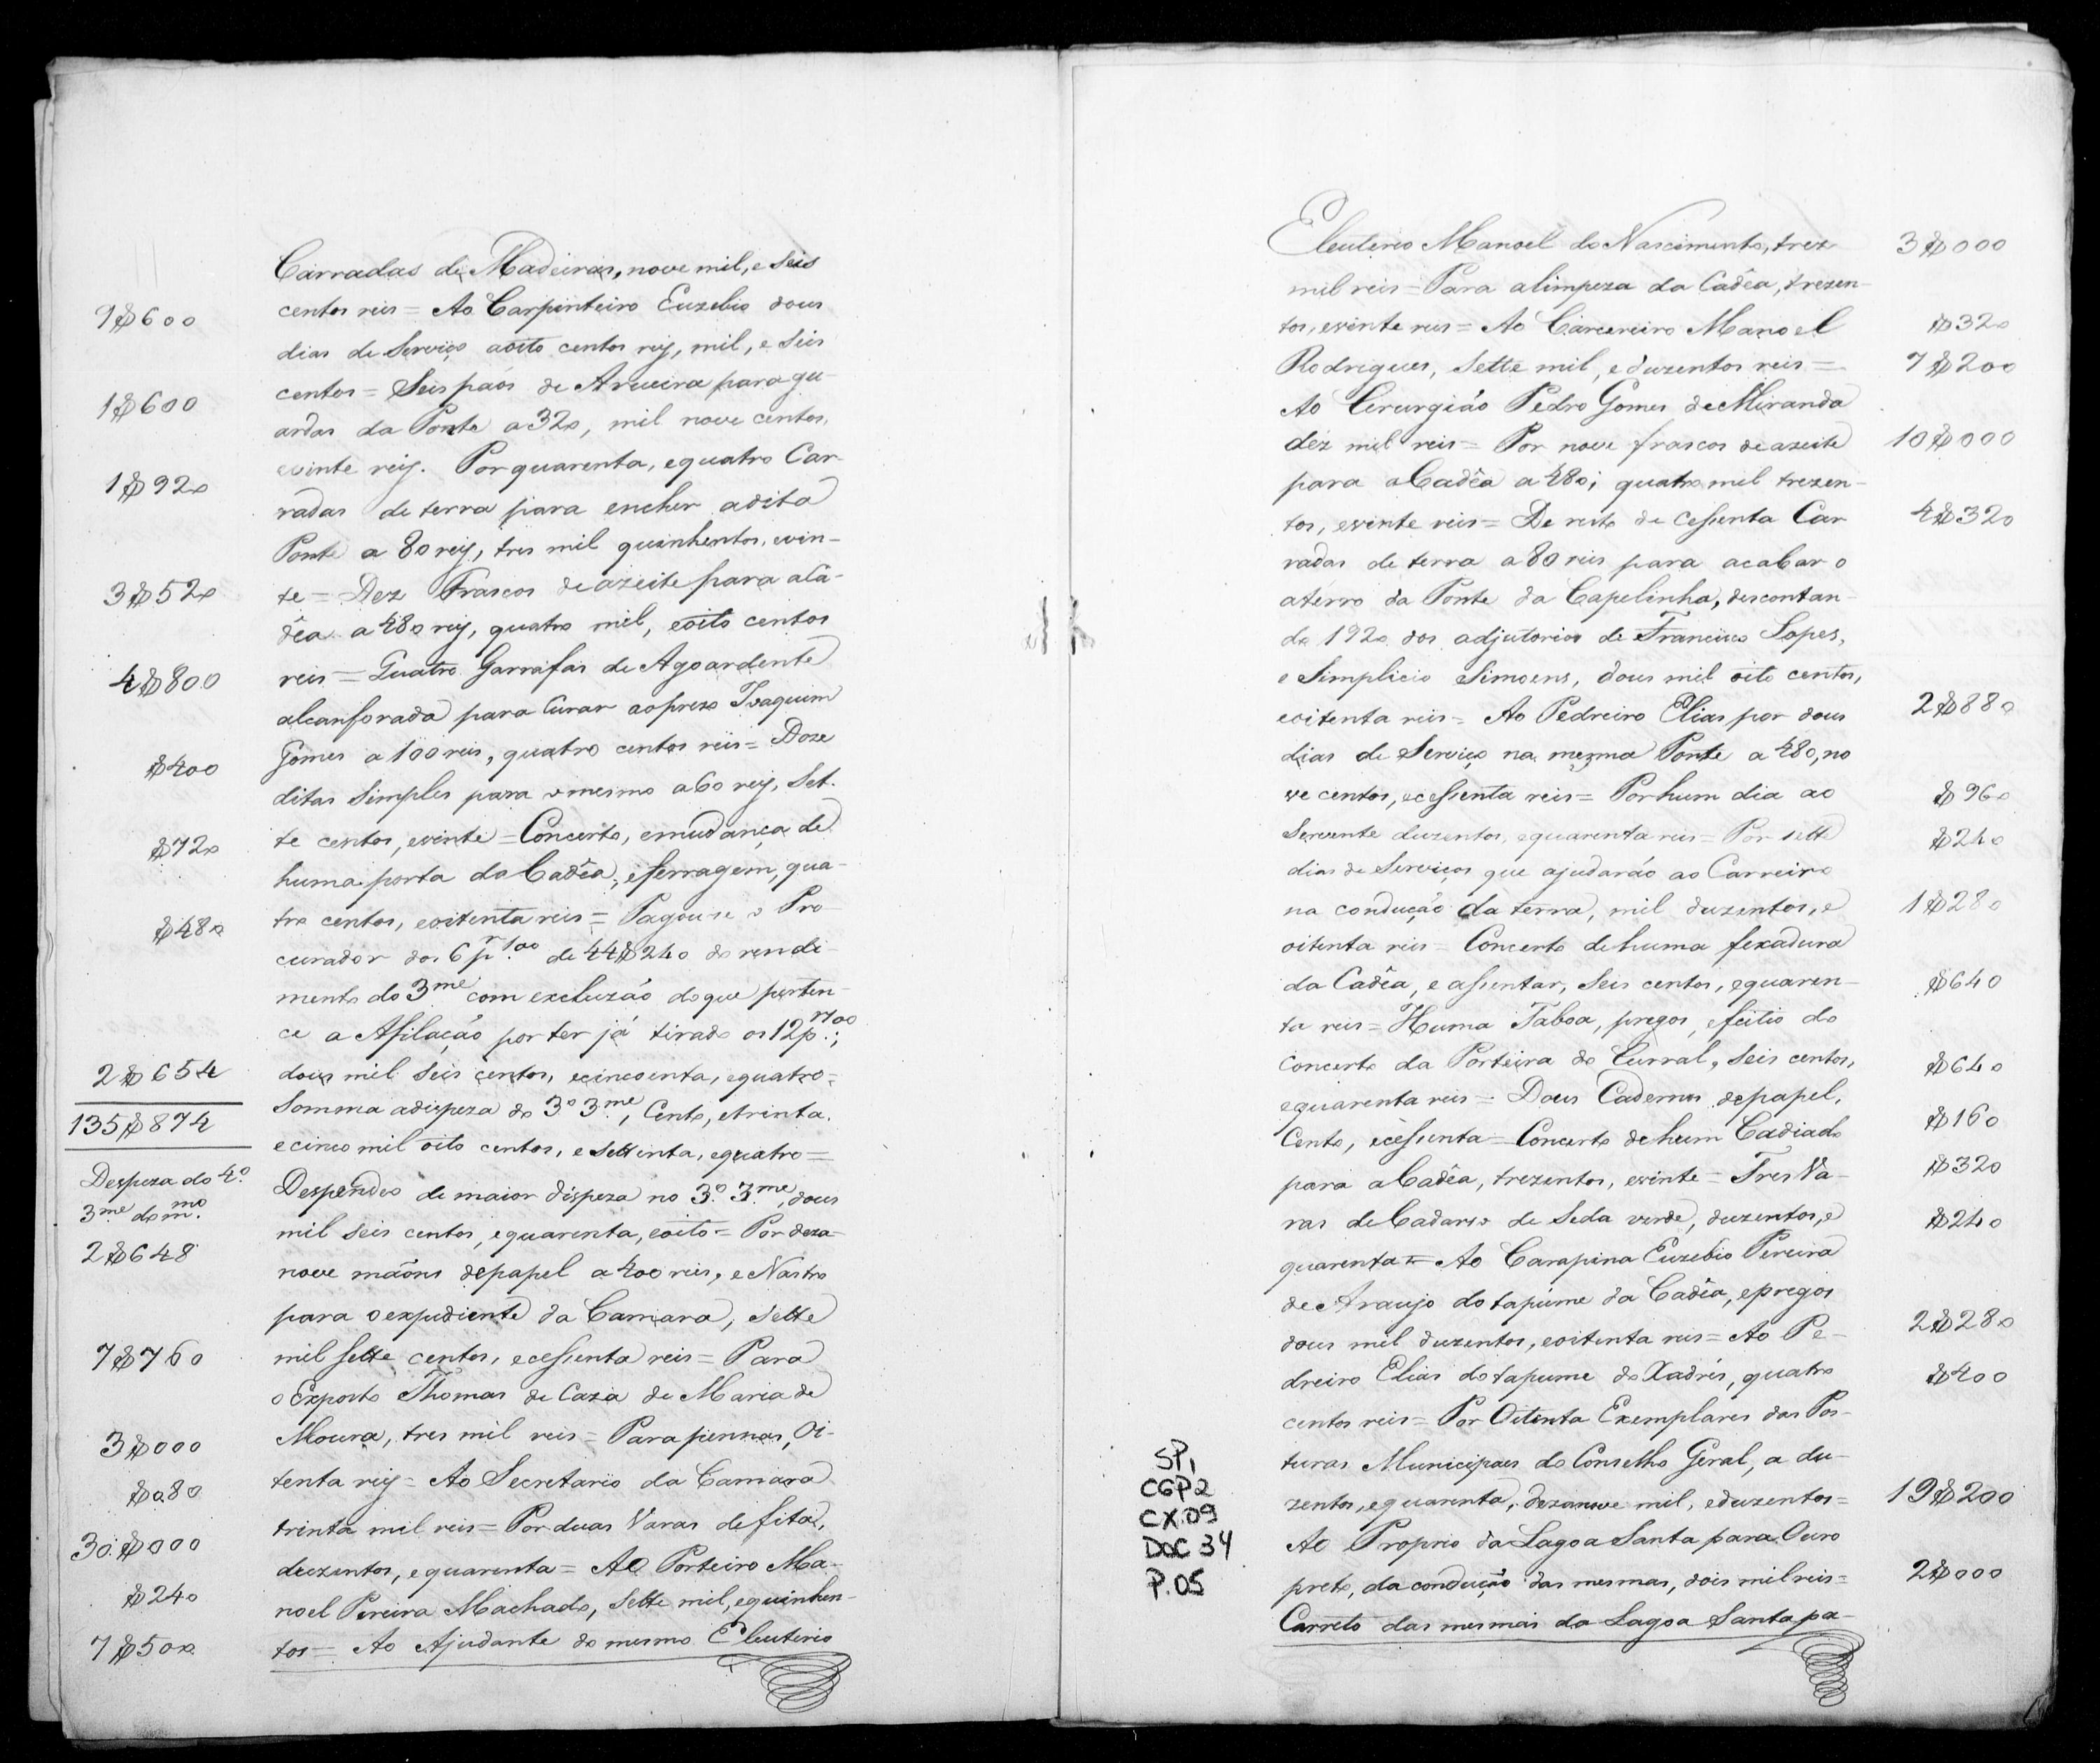 Carradas de Madeiras, nove mil, e seis
9$600
centos reis = Ao Carpinteiro Euzebio dous
dias de Serviço aoito centos reis, mil, e seis
1$600
centos = Seis páos de Arueira para gu-
ardas da Ponte a 320, mil nove centos,
1$920
evinte reis. Por quarenta, equatro Car-
radas de terra para encher adita
Ponte a 80 reis, tres mil quinhentos, evin-
3$520
te = Dez Frascos de azeite para aCa-
dêa a 480 reis, quatro mil, eoito centos
4$800
reis = Quatro Garrafas de Agoardente
alcanforada para Curar aoprezo Joaquim
$400
Gomes a 100 reis, quatro centos reis = Doze
ditas simples para o mesmo a 60 reis, Set-
$720
te centos, evinte = Concerto, emudança de
huma porta da Cadêa, eferragem, qua-
$480
tro centos, eoitenta reis = Pagou-se o Pro-
curador dos 6 p.r 100 de 44$240 do rendi-
mento do 3.me com excluzão doque perten-
ce a Afilação por ter já tirado os 12 p.r 100;
2$654
dous mil seis centos, ecincoenta, equatro =
135$874
Somma adispeza do 3.º 3.me, Cento, etrinta,
ecinco mil oito centos, e settenta, equatro =
Despeza do 4.º
3.me do m.mo
Despendeo de maior dispeza no 3.º 3.me, dous
2$648
mil seis centos, equarenta, eoito = Por deza-
nove mãons depapel a 400 reis, e Nastro
para oexpediente da Camara, sette
7$760
mil sette centos, ecessenta reis = Para
o Exposto Thomas de Caza de Maria de
3$000
Moura, tres mil reis = Para pennas, Oi-
$080
tenta reis = Ao Secretario da Camara
30$000
trinta mil reis = Por duas Varas defita,
duzentos, equarenta = Ao Porteiro Ma-
$240
noel Pereira Machado, Sette mil, equinhen-
7$500
tos = Ao Ajudante do mesmo Eleuterio
Eleuterio Manoel do Nascimento, trez
3$000
mil reis = Para alimpeza da Cadêa, trezen-
tos, evinte reis = Ao Carcereiro Manoel
$320
Rodrigues, Sette mil, e duzentos reis =
7$200
Ao Cirurgião Pedro Gomes de Miranda
dez mil reis = Por nove frascos de azeite
10$000
para aCadêa a 480; quatro mil trezen-
tos, evinte reis = De resto de Cessenta Car-
4$320
radas de terra a 80 reis para acabar o
aterro da Ponte da Capelinha, descontan-
do 1920 dos adjutorios de Francisco Lopes,
e Simplicio Simoens, dous mil oito centos,
eoitenta reis = Ao Pedreiro Elias por dous
2$880
dias de Serviço na mezma Ponte a 480, no
ve centos, ecessenta reis = Por hum dia ao
$960
Servente duzentos, equarenta reis = Por sette
$240
dias de Serviços que ajudarão ao Carreiro
na condução da terra, mil duzentos, e
1$280
oitenta reis = Concerto de huma fexadura
da Cadêa, e assentar, seis centos, equaren-
$640
ta reis = Huma Taboa, pregos, efeitio do
concerto da Porteira do Curral, Seis centos,
$640
equarenta reis = Dous Cadernos depapel,
Cento, ecessenta = Concerto de hum Cadiado
$160
para aCadêa, trezentos, evinte = Tres Va-
$320
ras de Cadarso de Seda verde, duzentos, e
$240
quarenta = Ao Carapina Euzebio Pereira
de Araujo do tapúme da Cadêa, epregos
dous mil duzentos, eoitenta reis = Ao Pe-
2$280
dreiro Elias do tapume do Xadrés, quatro
$400
centos reis = Por Oitenta Exemplares das Pos-
turas Municipaes do Conselho Geral, a du-
zentos, equarenta, dezanove mil, eduzentos =
19$200
Ao Proprio da Lagoa Santa para Ouro
preto, da condução das mesmas, dois mil reis =
2$000
Carreto das mesmas da Lagoa Santa pa-
SP,
CGP2
CX.09
DOC 34
P.05